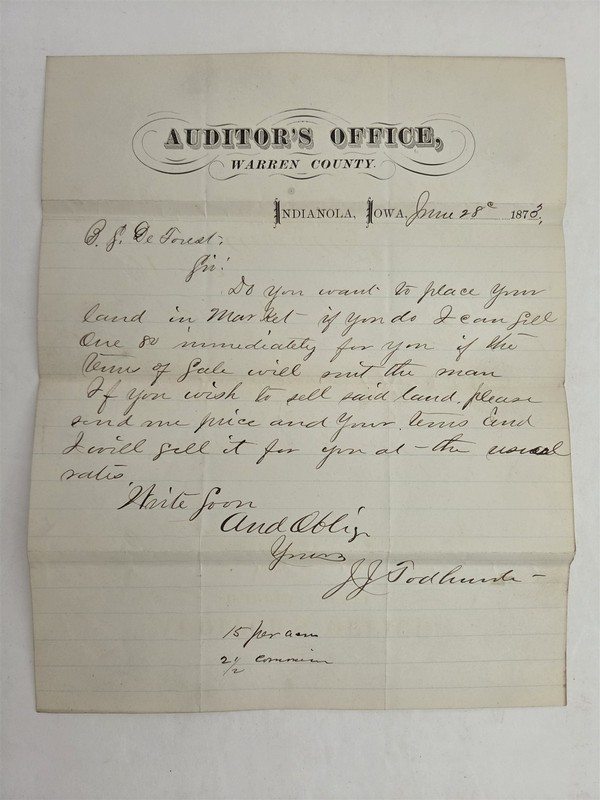 AUDITOR'S OFFICE,
WARREN COUNTY.
INDIANOLA, IOWA, June 28th 1873,
B. J. De Forest,
Sir!
Do you want to place your
land in Market if you do I can sell
One 80 immediately for you if the
terms of Sale will suit the man
If you wish to sell said land, please
send me price and your terms and
I will sell it for you at the usual
rates.
Write Soon
And Oblige
Yours
J J Todhunter
15 per acre
2 1/2 commission